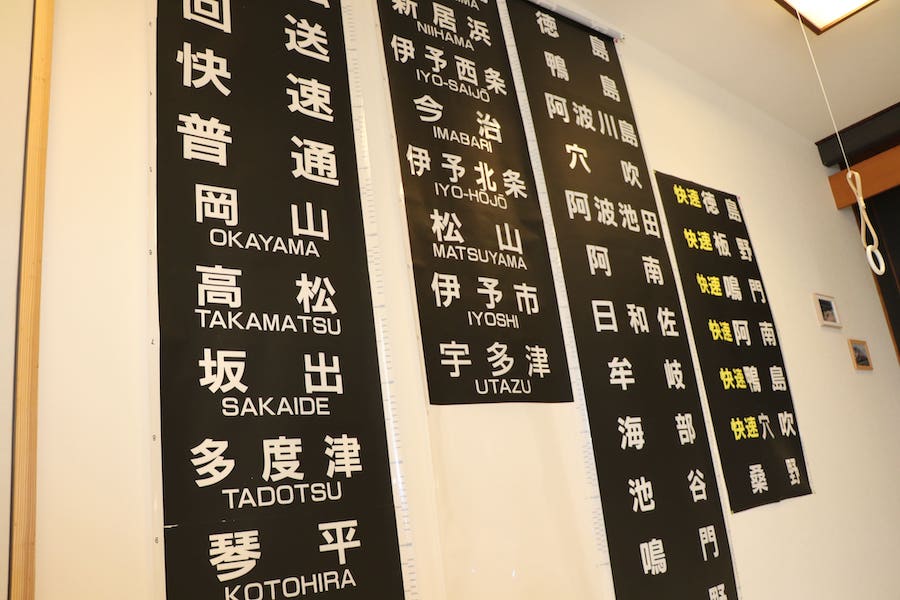 回送
快速
普通
岡山
OKAYAMA
高松
TAKAMATSU
坂出
SAKAIDE
多度津
TADOTSU
琴平
KOTOHIRA
新居浜
NIIHAMA
伊予西条
IYO-SAIJŌ
今治
IMABARI
伊予北条
IYO-HŌJŌ
松山
MATSUYAMA
伊予市
IYOSHI
宇多津
UTAZU
徳島
鴨島
阿波川島
穴吹
阿波池田
阿南
日和佐
牟岐
海部
池谷
鳴門
野
快速徳島
快速板野
快速鳴門
快速阿南
快速鴨島
快速穴吹
桑野